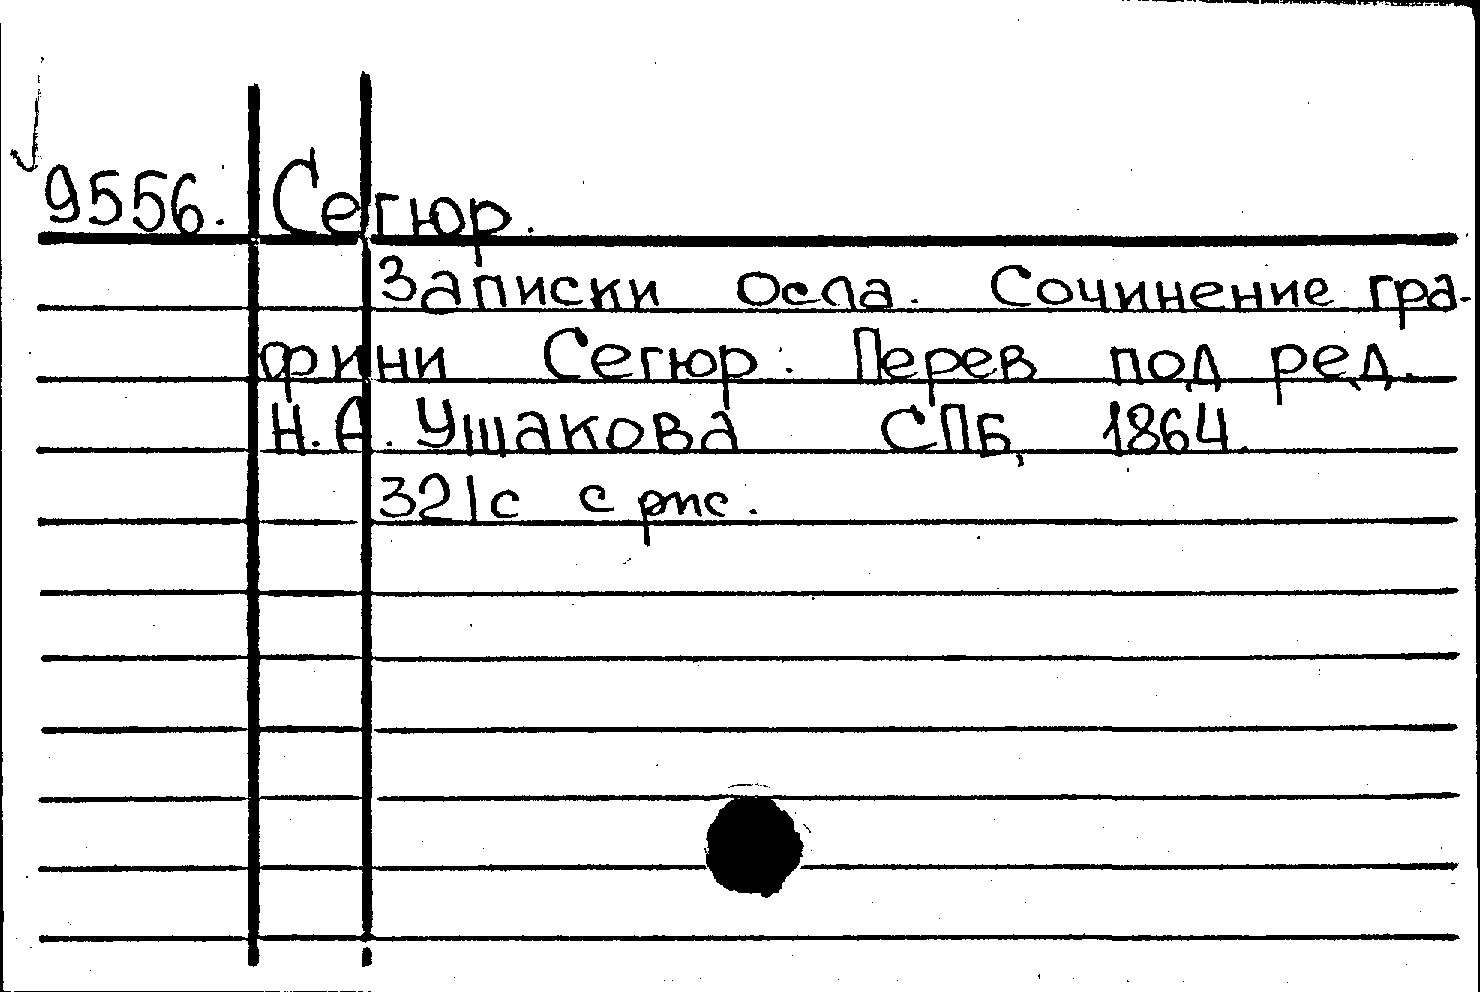 9556. Сегюр.
Записки осла. Сочинение гра-
фини Сегюр. Перев под ред.
Н.А. Ушакова СПБ, 1864.
321с с рис.